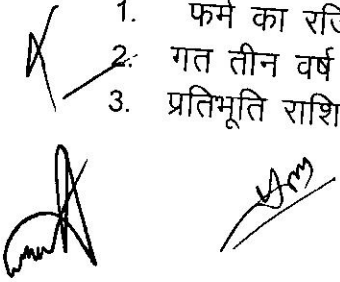 1. फर्म का
2. गत तीन वर्ष
3. प्रतिभूति राशि